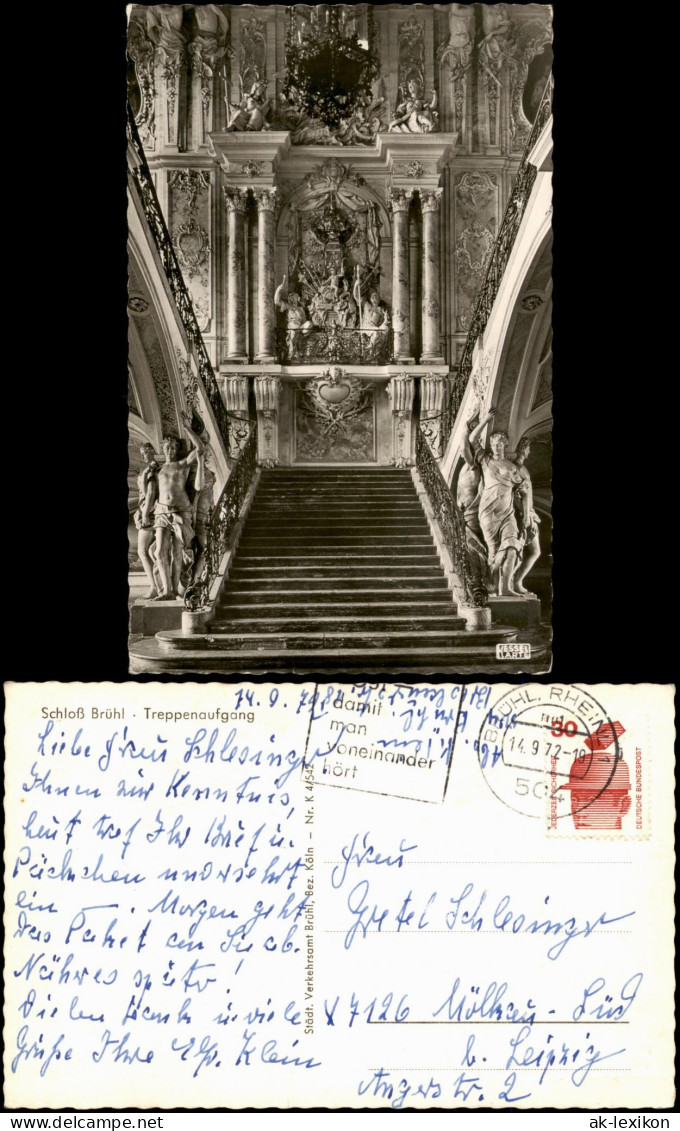 KESSEL
KARTE
Schloß Brühl · Treppenaufgang
14. 9. 72
Liebe Frau Schlesinger
Ihnen zur Kenntnis,
heut traf Ihr Brief u.
Päckchen unversehrt
ein — . Morgen geht
das Paket an Sie ab.
Näheres später!
Vielen Dank u. viele
Grüße Ihre Klein
Städt. Verkehrsamt Brühl, Bez. Köln — Nr. K 4/542
damit
man
voneinander
hört
BRÜHL, RHEINL 1
14.9.72-18
504
30
JEDERZEIT SICHERHEIT
DEUTSCHE BUNDESPOST
Frau
Gretel Schlesinger
X 7126 Mölkau - Süd
b. Leipzig
Angerstr. 2
ak-lexikon.com